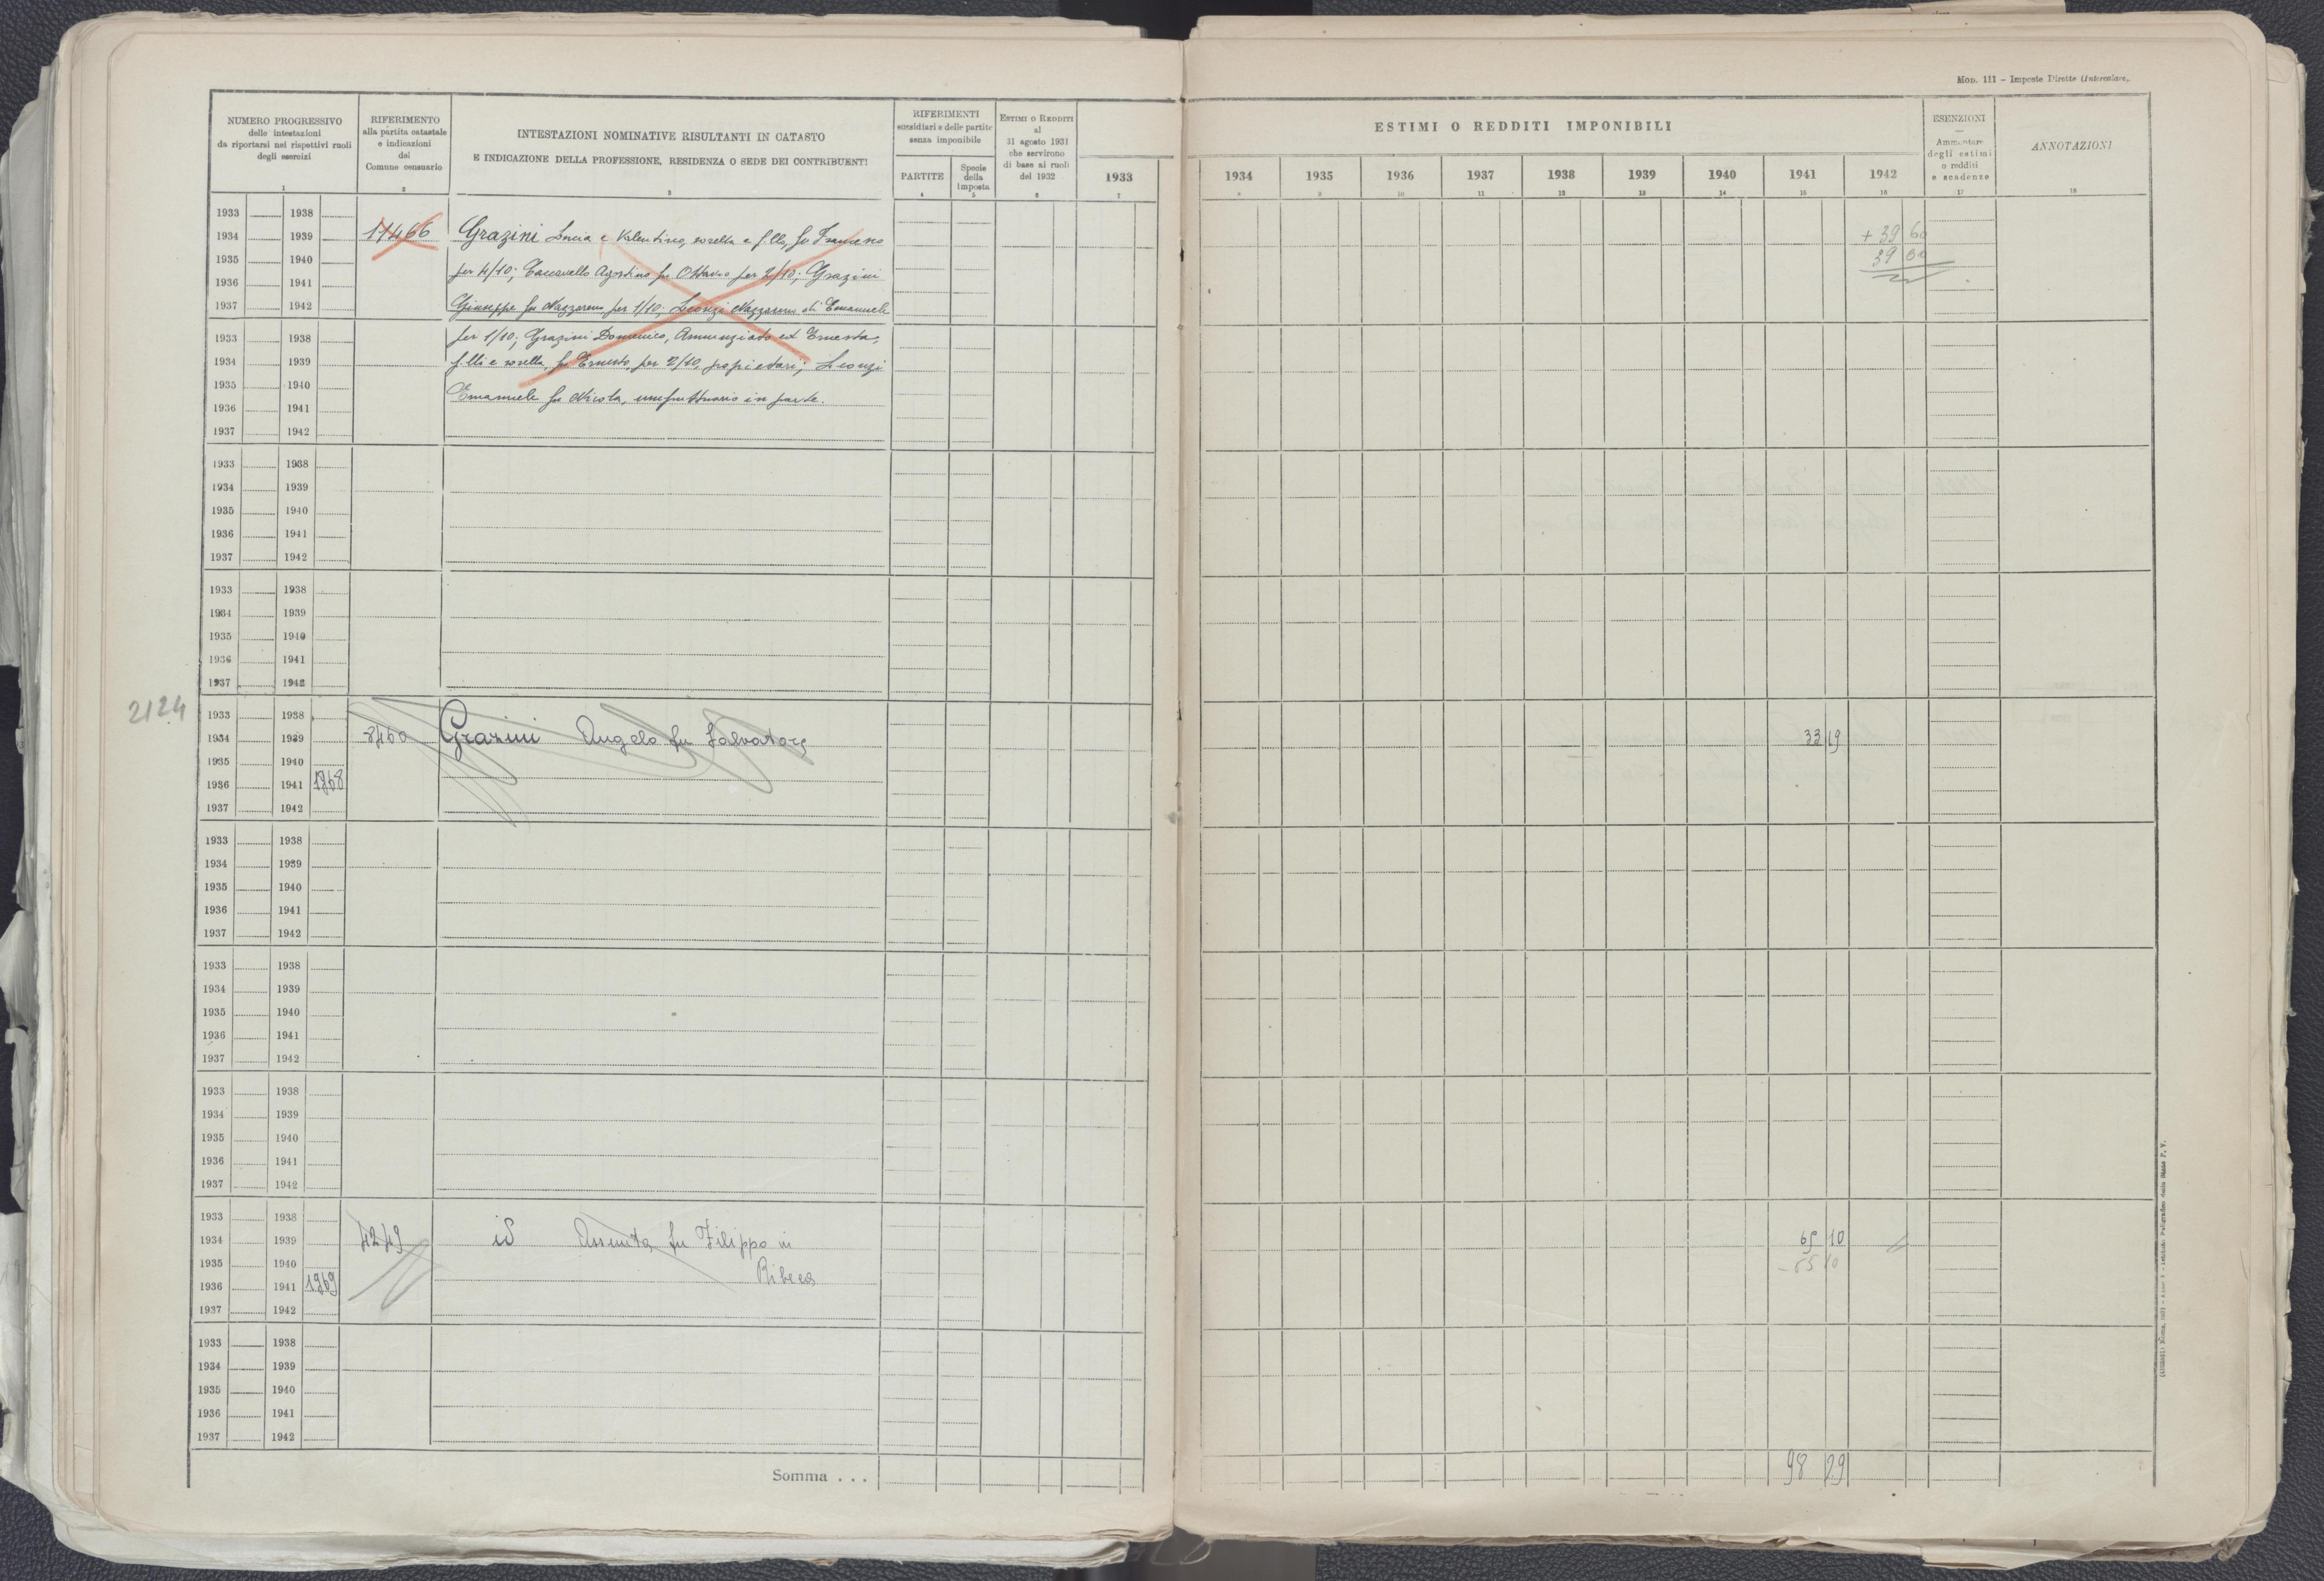 Mod. 111 - Imposte Dirette (Intercalare).
NUMERO PROGRESSIVO
delle intestazioni
da riportarsi nei rispettivi ruoli
degli esercizi
1
RIFERIMENTO
alla partita catastale
e indicazioni
del
Comune censuario
2
INTESTAZIONI NOMINATIVE RISULTANTI IN CATASTO
E INDICAZIONE DELLA PROFESSIONE, RESIDENZA O SEDE DEI CONTRIBUENTI
3
RIFERIMENTI
sussidiari e delle partite
senza imponibile
PARTITE
4
Specie
della
Imposta
5
ESTIMI O REDDITI
al
31 agosto 1931
che servirono
di base ai ruoli
del 1932
6
ESTIMI O REDDITI IMPONIBILI
1933 1934 1935 1936 1937 1938 1939 1940 1941 1942
7 8 9 10 11 12 13 14 15 16
ESENZIONI
—
Ammontare
degli estimi
o redditi
e scadenze
17
ANNOTAZIONI
18
1933 1938
1934 1939 11466 Grazini Lucia e Valentino, sorella e f.llo, fu Francesco + 39 60
1935 1940 per 4/10; Taccarello Agostino fu Ottavio per 2/10; Grazini 39 60
1936 1941
1937 1942 Giuseppe fu Nazzareno per 1/10; Leonzi Nazzareno di Emanuele
1933 1938 per 1/10; Grazini Domenico, Annunziato ed Ernesta,
1934 1939 f.lli e sorella, fu Ernesto, per 2/10, proprietari; Leonzi
1935 1940 Emanuele fu Nicola, usufruttuario in parte.
1936 1941
1937 1942
1933 1938
1934 1939
1935 1940
1936 1941
1937 1942
1933 1938
1934 1939
1935 1940
1936 1941
1937 1942
2124
1933 1938
1934 1939 8460 Grazini Angelo fu Salvatore 33 19
1935 1940
1936 1941 1868
1937 1942
1933 1938
1934 1939
1935 1940
1936 1941
1937 1942
1933 1938
1934 1939
1935 1940
1936 1941
1937 1942
1933 1938
1934 1939
1935 1940
1936 1941
1937 1942
1933 1938
1934 1939 4249 id Assunta fu Filippo in 65 10
1935 1940 Ribeca - 65 10
1936 1941 1869
1937 1942
1933 1938
1934 1939
1935 1940
1936 1941
1937 1942
Somma . . . 98 29